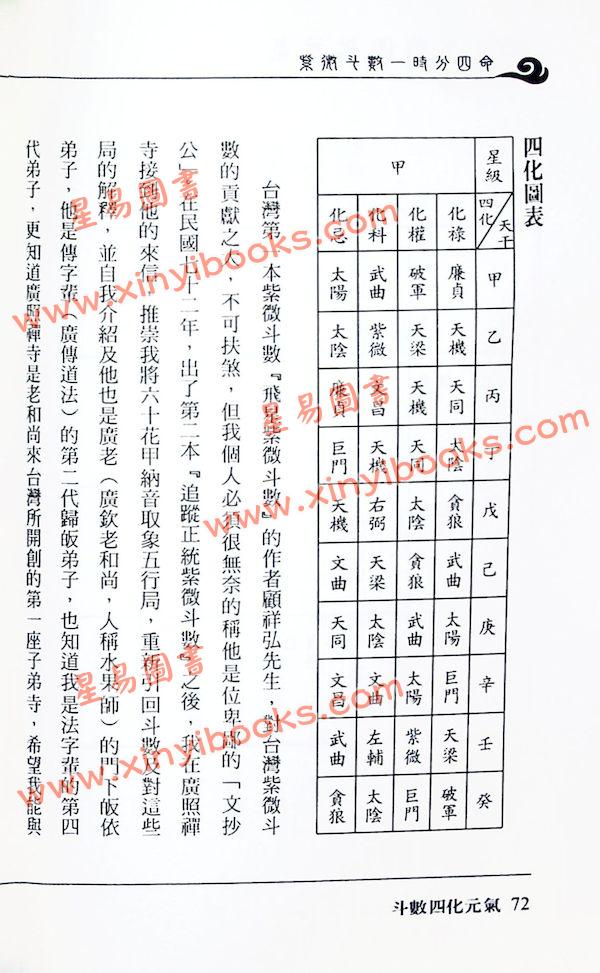 紫微斗數一時分四命
四化圖表
星級 四化 天干 甲 乙 丙 丁 戊 己 庚 辛 壬 癸
甲
化祿 廉貞 天機 天同 太陰 貪狼 武曲 太陽 巨門 天梁 破軍
化權 破軍 天梁 天機 天同 太陰 貪狼 武曲 太陽 紫微 巨門
化科 武曲 紫微 文昌 天機 右弼 天梁 太陰 文曲 左輔 太陰
化忌 太陽 太陰 廉貞 巨門 天機 文曲 天同 文昌 武曲 貪狼
台灣第一本紫微斗數『飛星紫微斗數』的作者顧祥弘先生，對台灣紫微斗
數的貢獻之大，不可扶煞，但我個人必須很無奈的稱他是位卑鄙的「文抄
公」在民國七十二年，出了第二本『追蹤正統紫微斗數』之後，我在廣照禪
寺接到他的來信，推崇我將六十花甲納音取象五行局，重新引回斗數及對這些
局的解釋，並自我介紹及他也是廣老（廣欽老和尚，人稱水果師）的門下皈依
弟子，他是傳字輩（廣傳道法）的第二代歸皈弟子，也知道我是法字輩的第四
代弟子，更知道廣照禪寺是老和尚來台灣所開創的第一座子弟寺，希望我能與
斗數四化元氣 72
星易圖書
www.xinyibooks.com
星易圖書
www.xinyibooks.com
星易圖書
www.xinyibooks.com